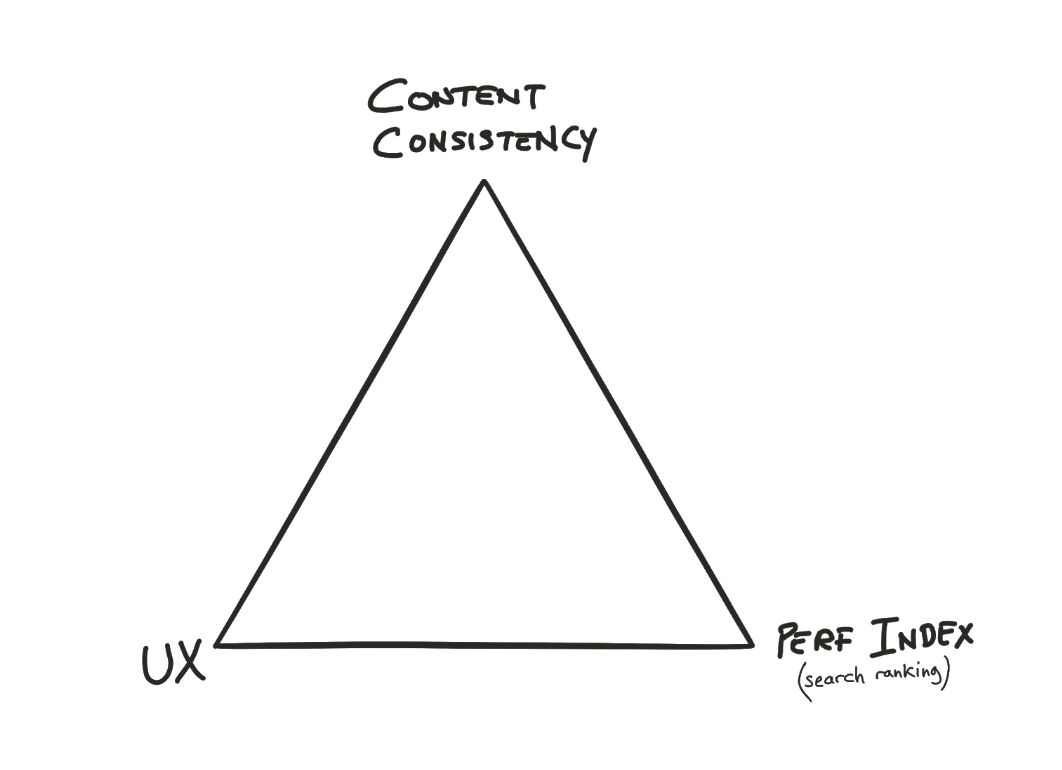 CONTENT
CONSISTENCY
UX
PERF INDEX
(search ranking)